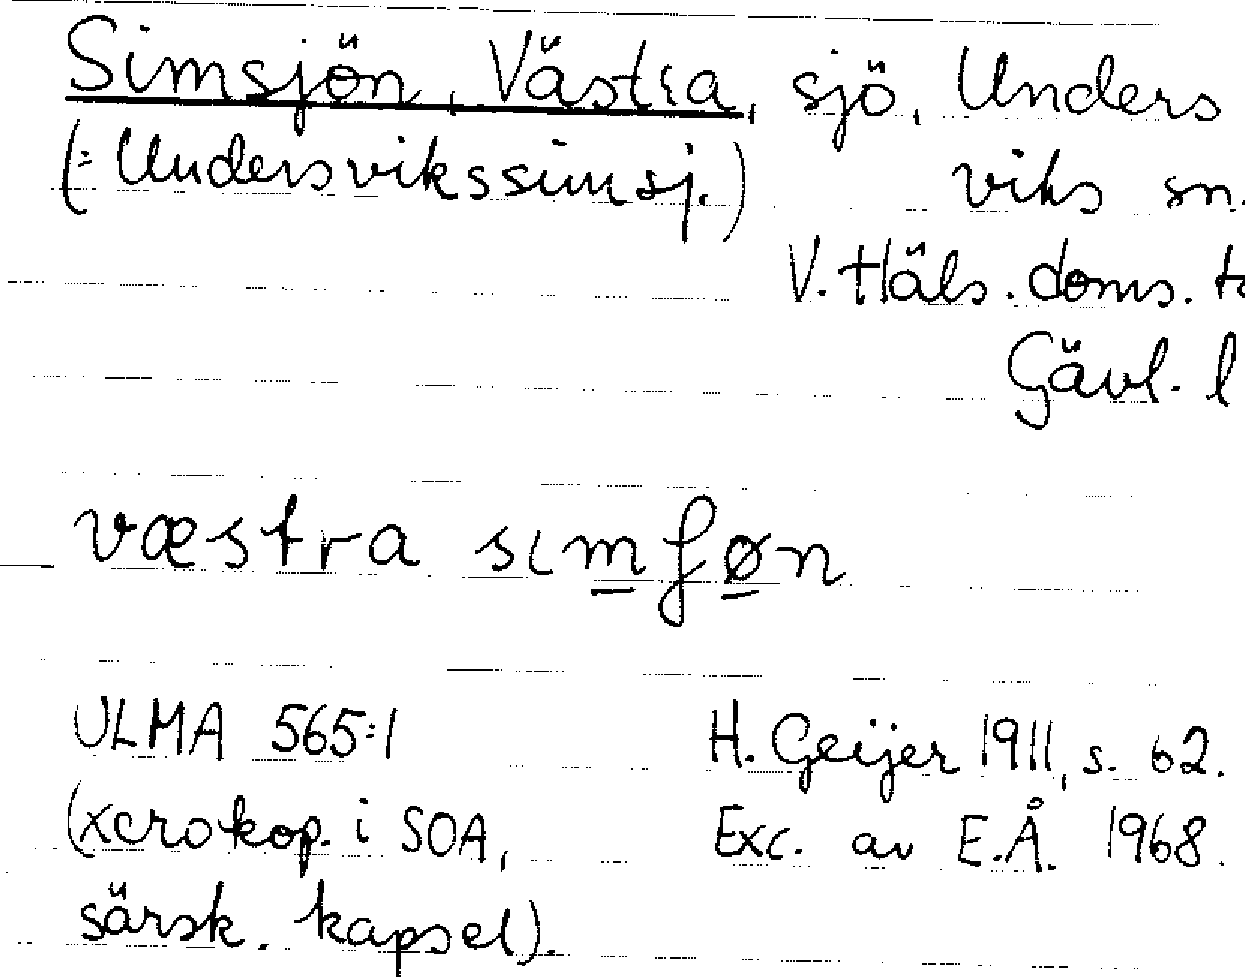 Simsjön, Västra, sjö, Unders
(= Undersvikssimsj.) viks sn.
V. Häls. doms.
Gävl. l
væstra sımʃøn
ULMA 565:1 H. Geijer 1911, s. 62.
(xerokop. i SOA, Exc. av E.Å. 1968.
särsk. kapsel).